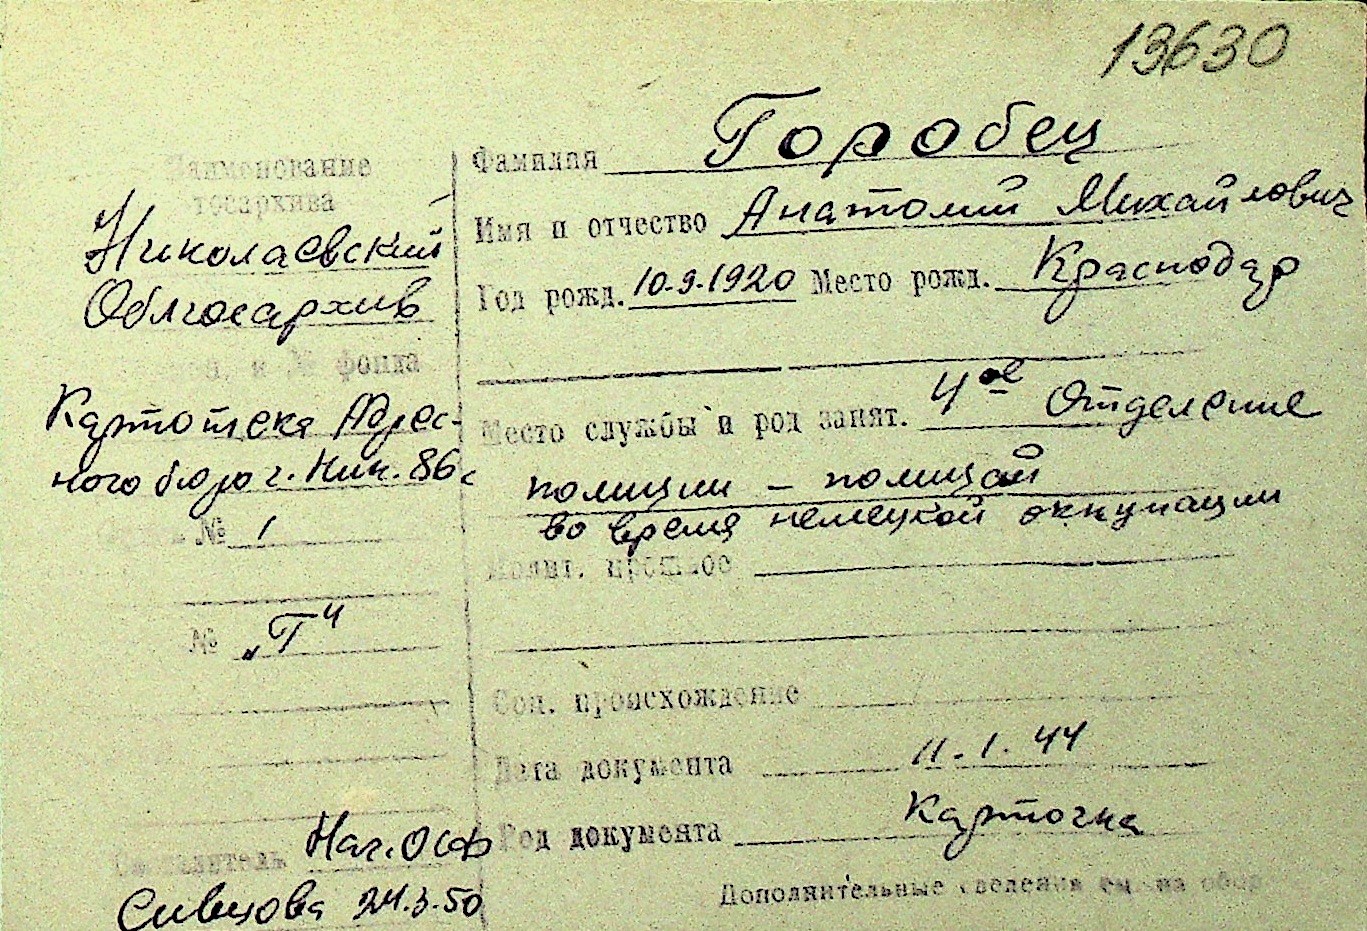 13630
Наименование
госархива
Николаевский
Облгосархив
№ фонда
Картотека Адрес-
ного бюро г. Ник. 86с
№ 1
№ „Г"
Нач. ОСФ
Сивцова 24.3.50
Фамилия Горобец
Имя и отчество Анатолий Михайлович
Год рожд. 10.9.1920 Место рожд. Краснодар
Место службы и род занят. 4ое Отделение
полиции – полицай
во время немецкой оккупации
Полит. прошлое
Соц. происхождение
Дата документа 11.1.44
Род документа Карточка
Дополнительные сведения см. на обор